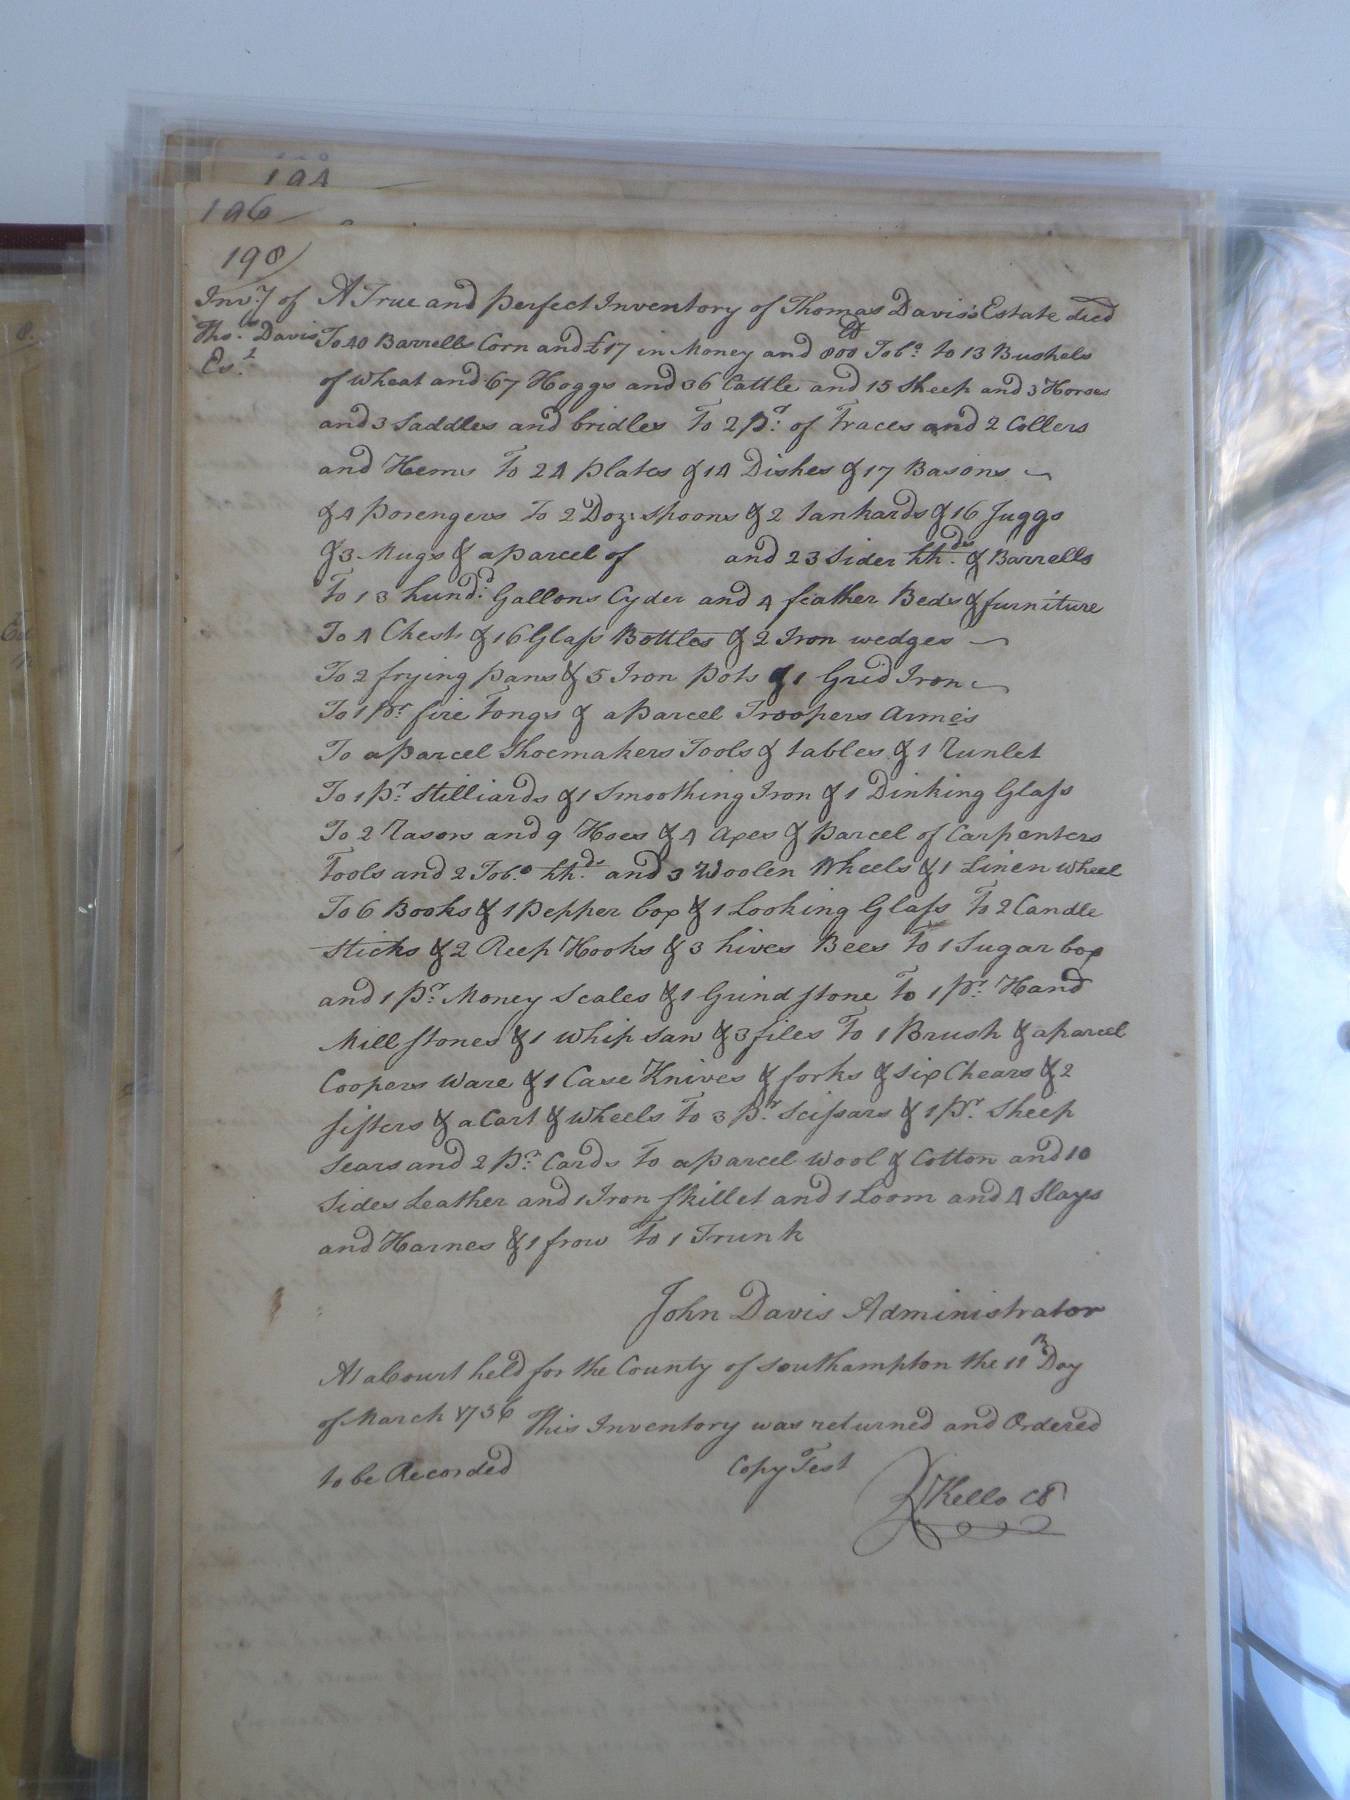 194
196
198
Inv.y of
Tho.s Davis
Es.t
A True and perfect Inventory of Thomas Davis's Estate died
To 40 Barrells Corn and £17 in Money and 800 lb Tob.o to 13 Bushels
of wheat and 67 Hoggs and 36 Cattle and 15 Sheep and 3 Horses
and 3 Saddles and bridles To 2 p.r of Traces and 2 Collers
and Hems To 24 plates & 14 Dishes & 17 Basons
& 4 porengers To 2 Doz: spoons & 2 tankards & 16 Juggs
& 3 Mugs & a parcel of and 23 Sider hh.ds & Barrells
To 13 hund.d Gallons Cyder and 4 feather Beds & furniture
To 4 Chests & 16 Glass Bottles & 2 Iron wedges
To 2 frying pans & 5 Iron pots & 1 Grid Iron
To 1 p.r fire Tongs & a parcel Troopers Armes
To a parcel Shoemakers Tools & tables & 1 Runlet
To 1 p.r Stilliards & 1 Smoothing Iron & 1 Dinking Glass
To 2 Rasors and 9 Hoes & 4 axes & parcel of Carpenters
Tools and 2 Tob.o hh.ds and 3 Woolen Wheels & 1 Linen wheel
To 6 Books & 1 pepper box & 1 Looking Glass To 2 Candle
Sticks & 2 Reep Hooks & 3 hives Bees To 1 Sugar box
and 1 p.r Money Scales & 1 Grindstone To 1 p.r Hand
Mill stones & 1 whip saw & 3 files To 1 Brush & a parcel
Coopers Ware & 1 Case Knives & forks & six Chears & 2
sifters & a Cart & wheels To 3 p.r Scissars & 1 p.r Sheep
Sears and 2 p.r Cards To a parcel wool & Cotton and 10
Sides Leather and 1 Iron Skillet and 1 Loom and 4 Slays
and Harnes & 1 frow To 1 Trunk
John Davis Administrator
At a Court held for the County of Southampton the 11th Day
of March 1756 This Inventory was returned and Ordered
to be Recorded Copy Test
Kello